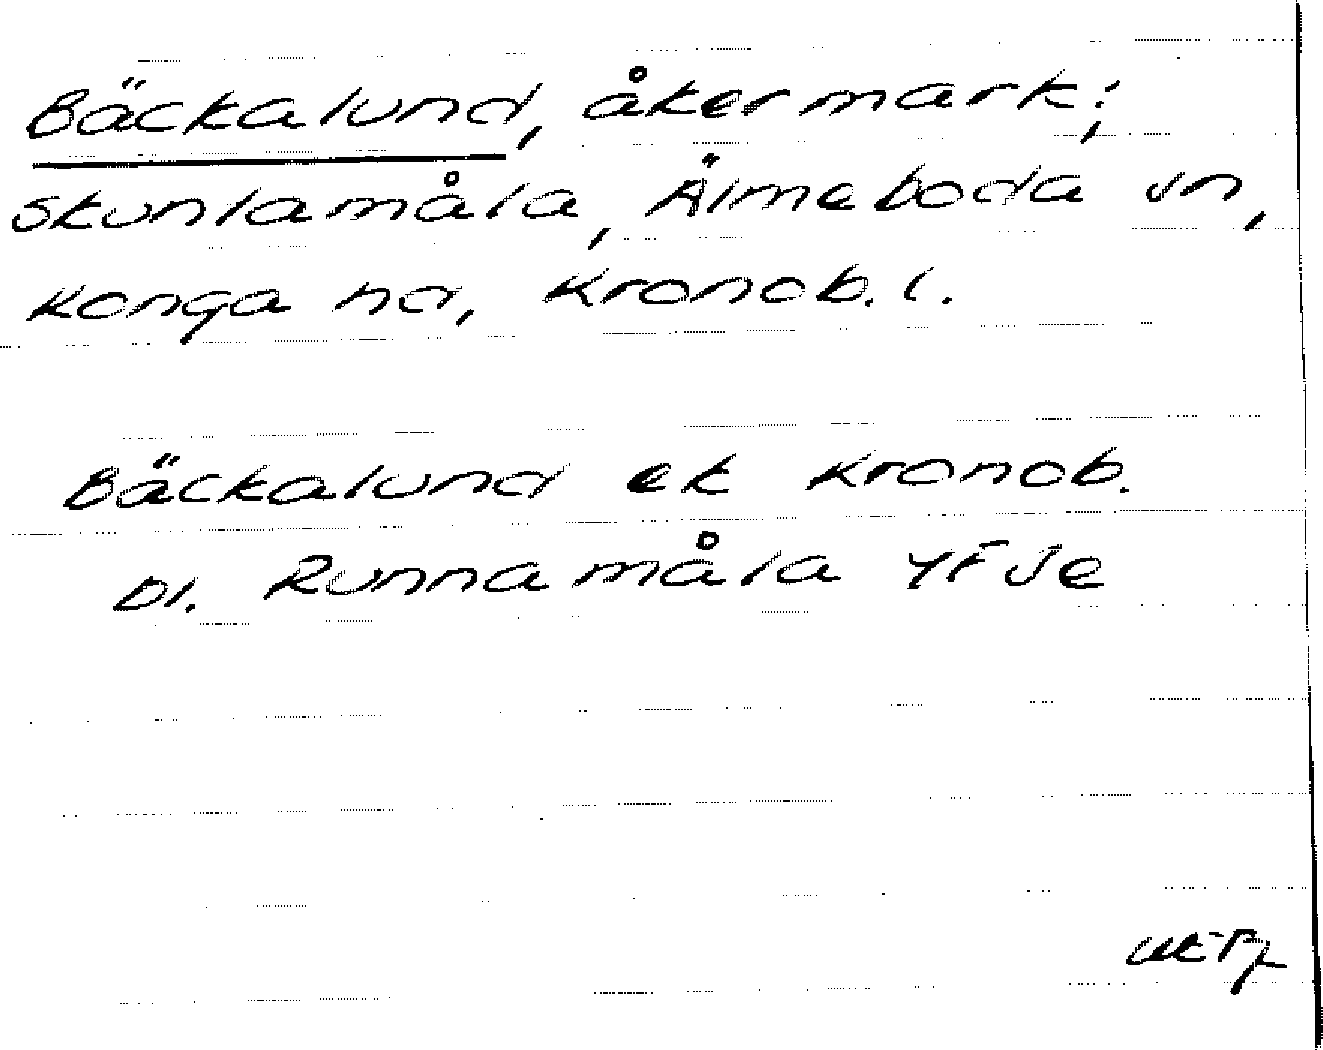 Bäckalund, åkermark;
Skunlamåla, Älmeboda sn,
Konga hd, Kronob. l.
Bäckalund ek Kronob.
bl. Runnamåla